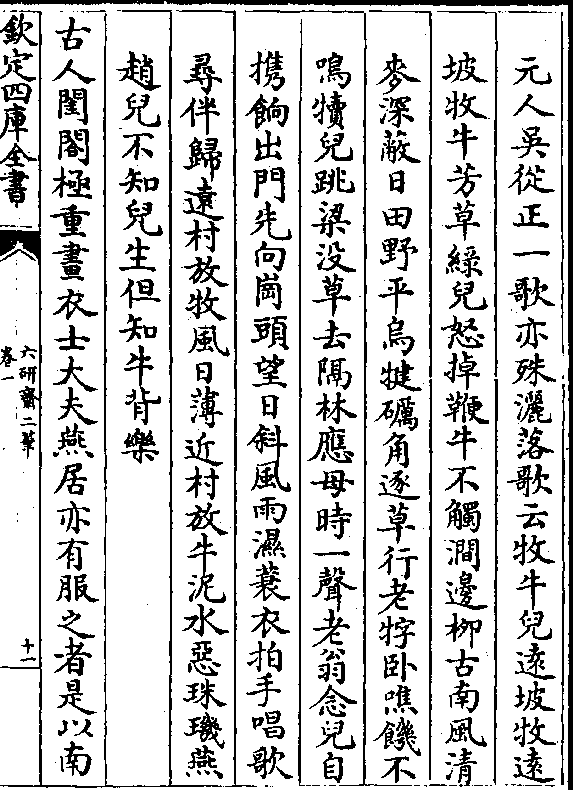 元人吳從正一歌亦殊灑落歌云牧牛兒遠坡牧遠
坡牧牛芳草綠兒怒掉鞭牛不觸澗邊柳古南風清
麥深蔽日田野平烏犍礪角逐草行老牸卧噍饑不
鳴犢兒跳梁没草去隔林應母時一聲老翁念兒自
携餉出門先向崗頭望日斜風雨濕蓑衣拍手唱歌
尋伴歸遠村放牧風日薄近村放牛泥水惡珠璣燕
趙兒不知兒生但知牛背樂
古人閨閤極重畫衣士大夫燕居亦有服之者是以南
欽定四庫全書
六研齋二筆
卷一
十一